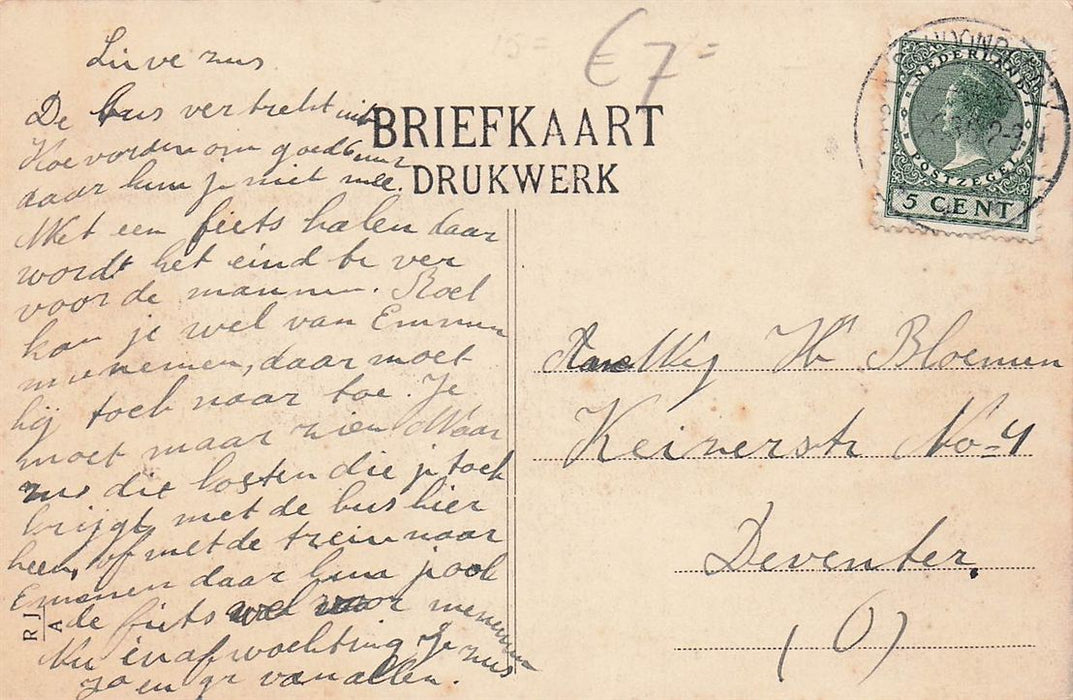 Lieve zus
De bus vertrekt uit
Koevorden om goed 6 uur
daar kun je niet mee.
Met een fiets halen daar
wordt het eind te ver
voor de mannen. Roel
kan je wel van Emmen
meenemen, daar moet
hij toch naar toe. Je
moet maar zien Waar
zus die kosten die je toch
krijgt met de bus hier
heen, of met de trein naar
Emmen daar kun je ook
de fiets wel voor nemen
Nu in afwachting Je zus
Jo en gr van allen.
RJ
A
15=
€7=
BRIEFKAART
DRUKWERK
NEDERLAND
POSTZEGEL
5 CENT
Wey Hr Bloemen
Keizerstr No 4
Deventer.
(O)